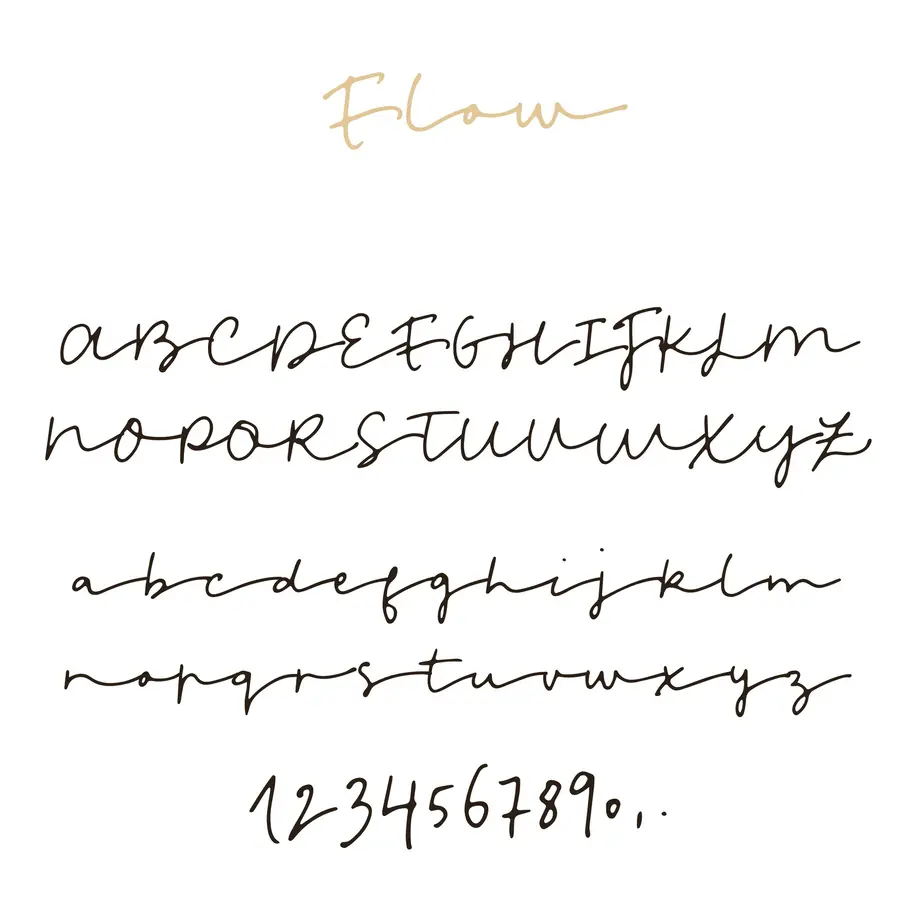 Flow
ABCDEFGHIJKLM
NOPQRSTUVWXYZ
abcdefghijklm
nopqrstuvwxyz
1234567890,.